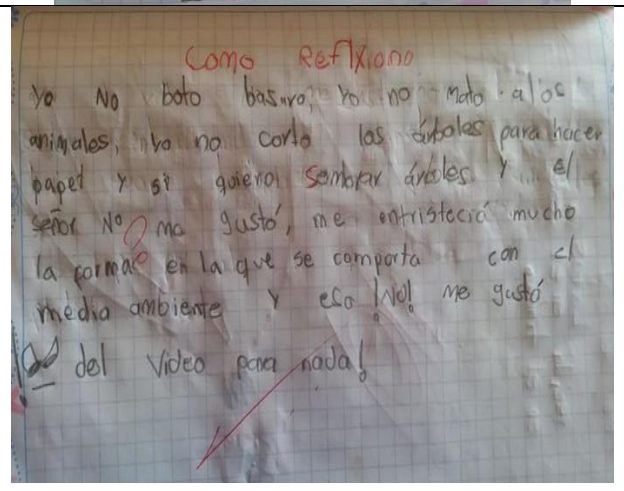 Como Reflxiono
Yo No boto basura, Yo no mato a los
animales, Yo no corto los árboles para hacer
papel y si quiero Sembrar árboles Y el
señor No me gustó, me entristeció mucho
la forma en la que se comporta con el
media ambiente Y eso ¡No! me gustó
del Video para nada!